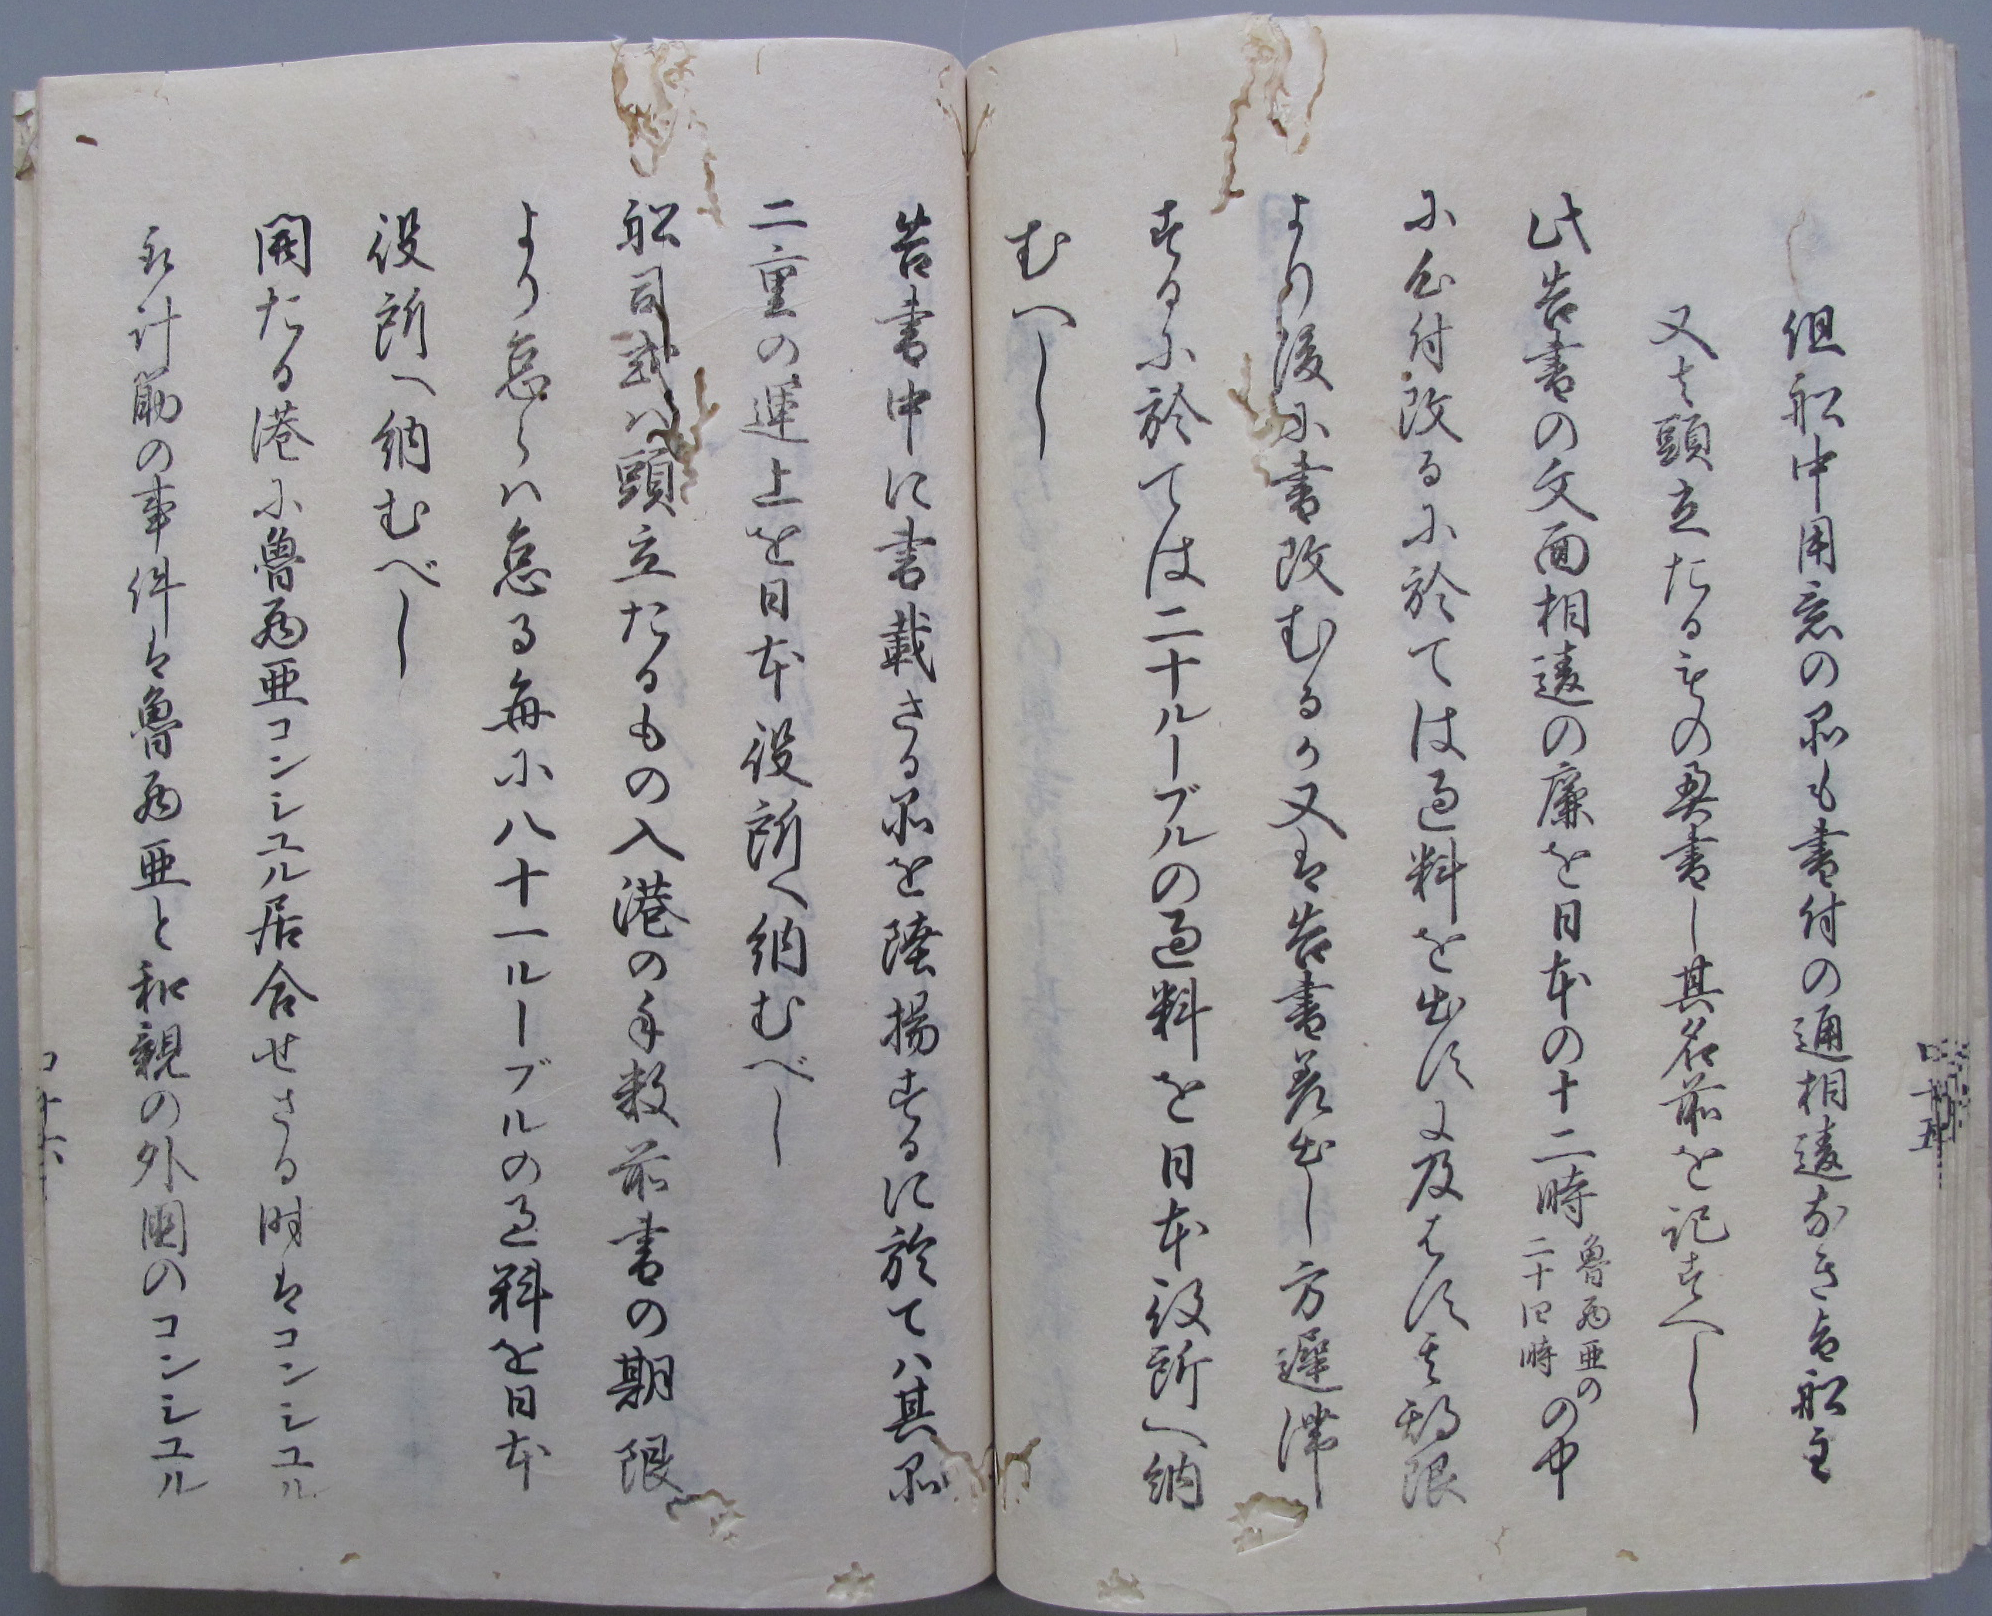 但船中用意の品も書付の通相違なき旨船主
又は頭立たるものの奥書し其名前を記すへし
此告書の文面相違の廉を日本の十二時魯西亜の二十四時の中
に心付改るに於ては過料を出すに及はす其期限
より後に書改むるか又は告書差出し方遅滞
するに於ては二十ルーブルの過料を日本役所へ納
むへし
告書中に書載さる品を陸揚するに於てハ其品
二重の運上を日本役所へ納むべし
船司或ハ頭立たるもの入港の手数前書の期限
より怠らハ怠る毎に八十一ルーブルの過料を日本
役所へ納むべし
開たる港に魯西亜コンシユル居合せさる時はコンシユル
取計筋の事件は魯西亜と和親の外国のコンシユル
口十五
口十六